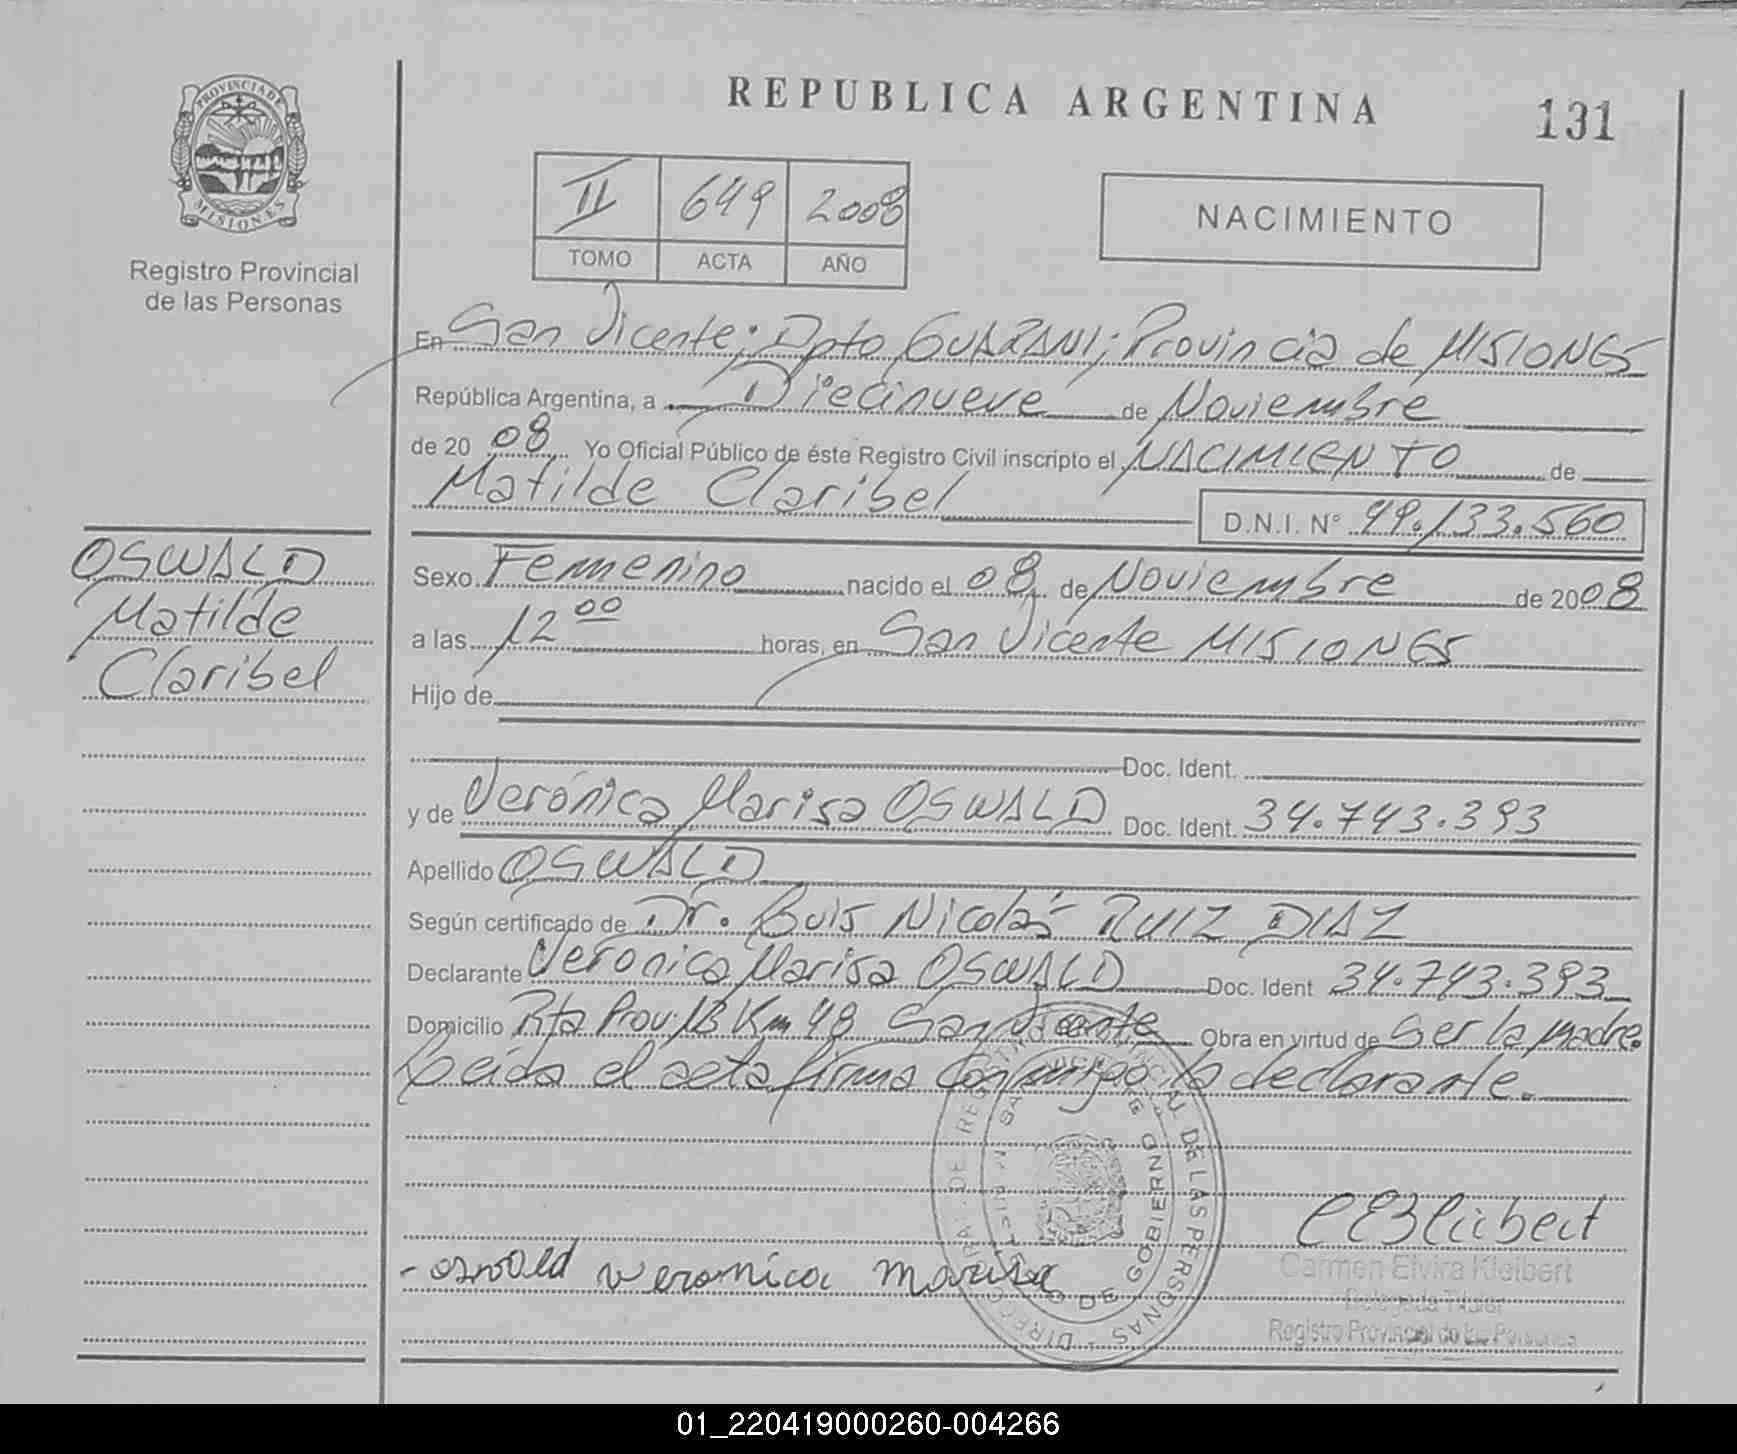 PROVINCIA DE
MISIONES
Registro Provincial
de las Personas
REPUBLICA ARGENTINA
131
II 649 2008
TOMO ACTA AÑO
NACIMIENTO
En San Vicente; Dpto GUARANI; Provincia de MISIONES
República Argentina, a Diecinueve de Noviembre
de 20 08 Yo Oficial Público de éste Registro Civil inscripto el NACIMIENTO de
Matilde Claribel
D.N.I. N° 49.133.560
OSWALD
Matilde
Claribel
Sexo Femenino nacido el 08 de Noviembre de 2008
a las 12 00 horas, en San Vicente MISIONES
Hijo de
Doc. Ident.
y de Verónica Marisa OSWALD Doc. Ident. 34.743.393
Apellido OSWALD
Según certificado de Dr. Luis Nicolás RUIZ DIAZ
Declarante Veronica Marisa OSWALD Doc. Ident 34.743.393
Domicilio Rta Prov. 13 Km 48 San Vicente Obra en virtud de Ser la madre.
Leida el acta firma conmigo la declarante.
DIRECCION GRAL. DE REGISTRO PROVINCIAL DE LAS PERSONAS
SAN VICENTE
MINISTERIO DE GOBIERNO
CEKleibert
- oswald veronica marisa
Carmen Elvira Kleibert
Delegada Titular
Registro Provincial de las Personas
01_220419000260-004266